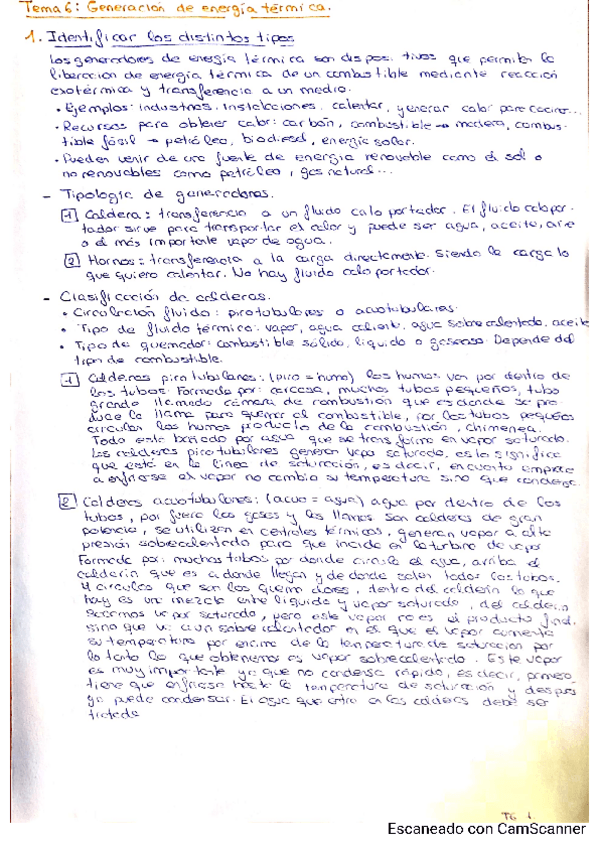 Tema 6: Generación de energía térmica.
1. Identificar los distintos tipos
Los generadores de energía térmica son dispositivos que permiten la
liberación de energía térmica de un combustible mediante reacción
exotérmica y transferencia a un medio.
• Ejemplos: industrias, instalaciones, calentar, generar calor para cocinar...
• Recursos para obtener calor: carbón, combustible → madera, combus-
tible fósil → petróleo, biodiesel, energía solar.
• Pueden venir de una fuente de energía renovable como el sol o
no renovables como petróleo, gas natural...
- Tipología de generadores.
1 Caldera: transferencia a un fluido caloportador. El fluido calopor-
tador sirve para transportar el calor y puede ser agua, aceite, aire
o el más importante vapor de agua.
2 Hornos: transferencia a la carga directamente. Siendo la carga lo
que quiero calentar. No hay fluido caloportador.
- Clasificación de calderas.
• Circulación fluido: pirotubulares o acuotubulares.
• Tipo de fluido térmico: vapor, agua caliente, agua sobrecalentada, aceite
• Tipo de quemador: combustible sólido, líquido o gaseoso. Depende del
tipo de combustible.
1 Calderas pirotubulares: (piro = humo) los humos van por dentro de
los tubos. Formada por: carcasa, muchos tubos pequeños, tubo
grande llamado cámara de combustión que es donde se pro-
duce la llama para quemar el combustible, por los tubos pequeños
circulan los humos producto de la combustión, chimenea.
Todo está bañado por agua que se transforma en vapor saturado.
Las calderas pirotubulares generan vapor saturado, esto significa
que está en la línea de saturación, es decir, en cuanto empiece
a enfriarse el vapor no cambia su temperatura sino que condensa.
2 Calderas acuotubulares: (acuo = agua) agua por dentro de los
tubos, por fuera los gases y las llamas son calderas de gran
potencia, se utilizan en centrales térmicas, generan vapor a alta
presión sobrecalentado para que incida en la turbina de vapor
Formada por: muchos tubos por donde circula el agua, arriba el
calderín que es a donde llegan y de donde salen todos los tubos.
4 círculos que son los quemadores, dentro del calderín lo que
hay es una mezcla entre líquido y vapor saturado, del calderín
sacamos vapor saturado, pero este vapor no es el producto final
sino que va a un sobrecalentador en el que el vapor aumenta
su temperatura por encima de la temperatura de saturación por
lo tanto lo que obtenemos es vapor sobrecalentado. Este vapor
es muy importante ya que no condensa rápido, es decir, primero
tiene que enfriarse hasta la temperatura de saturación y después
ya puede condensar. El agua que entra en las calderas debe ser
tratada
T6 1.
Escaneado con CamScanner